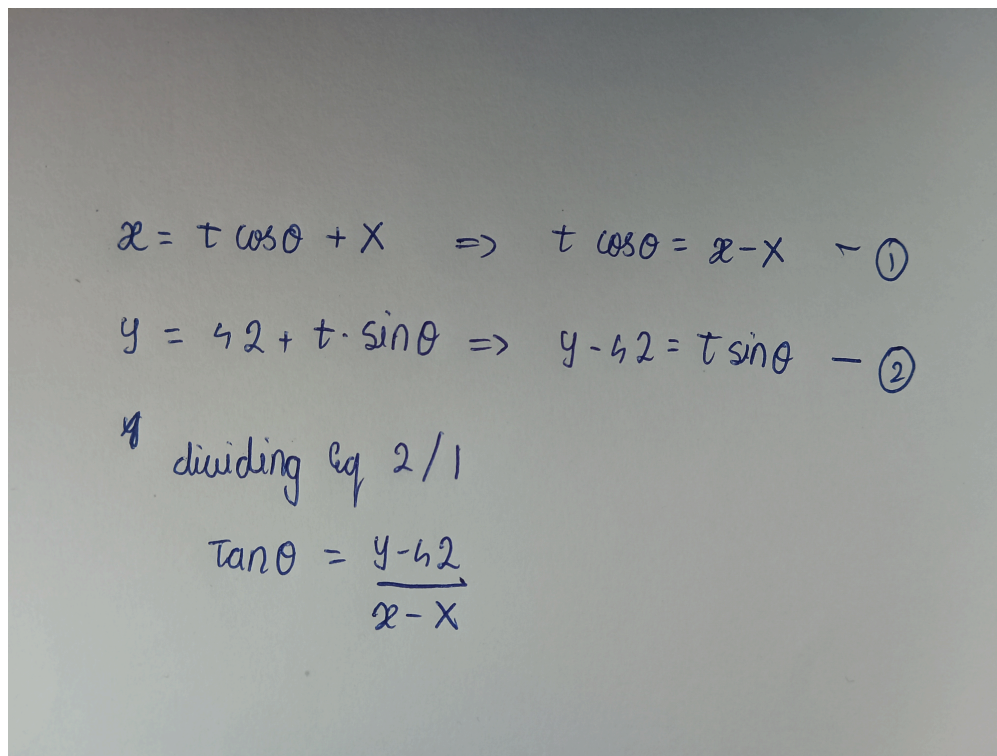 x = t cosθ + X => t cosθ = x - X - ①
y = 42 + t · sinθ => y - 42 = t sinθ - ②
dividing Eq 2/1
Tanθ = y-42
x - X